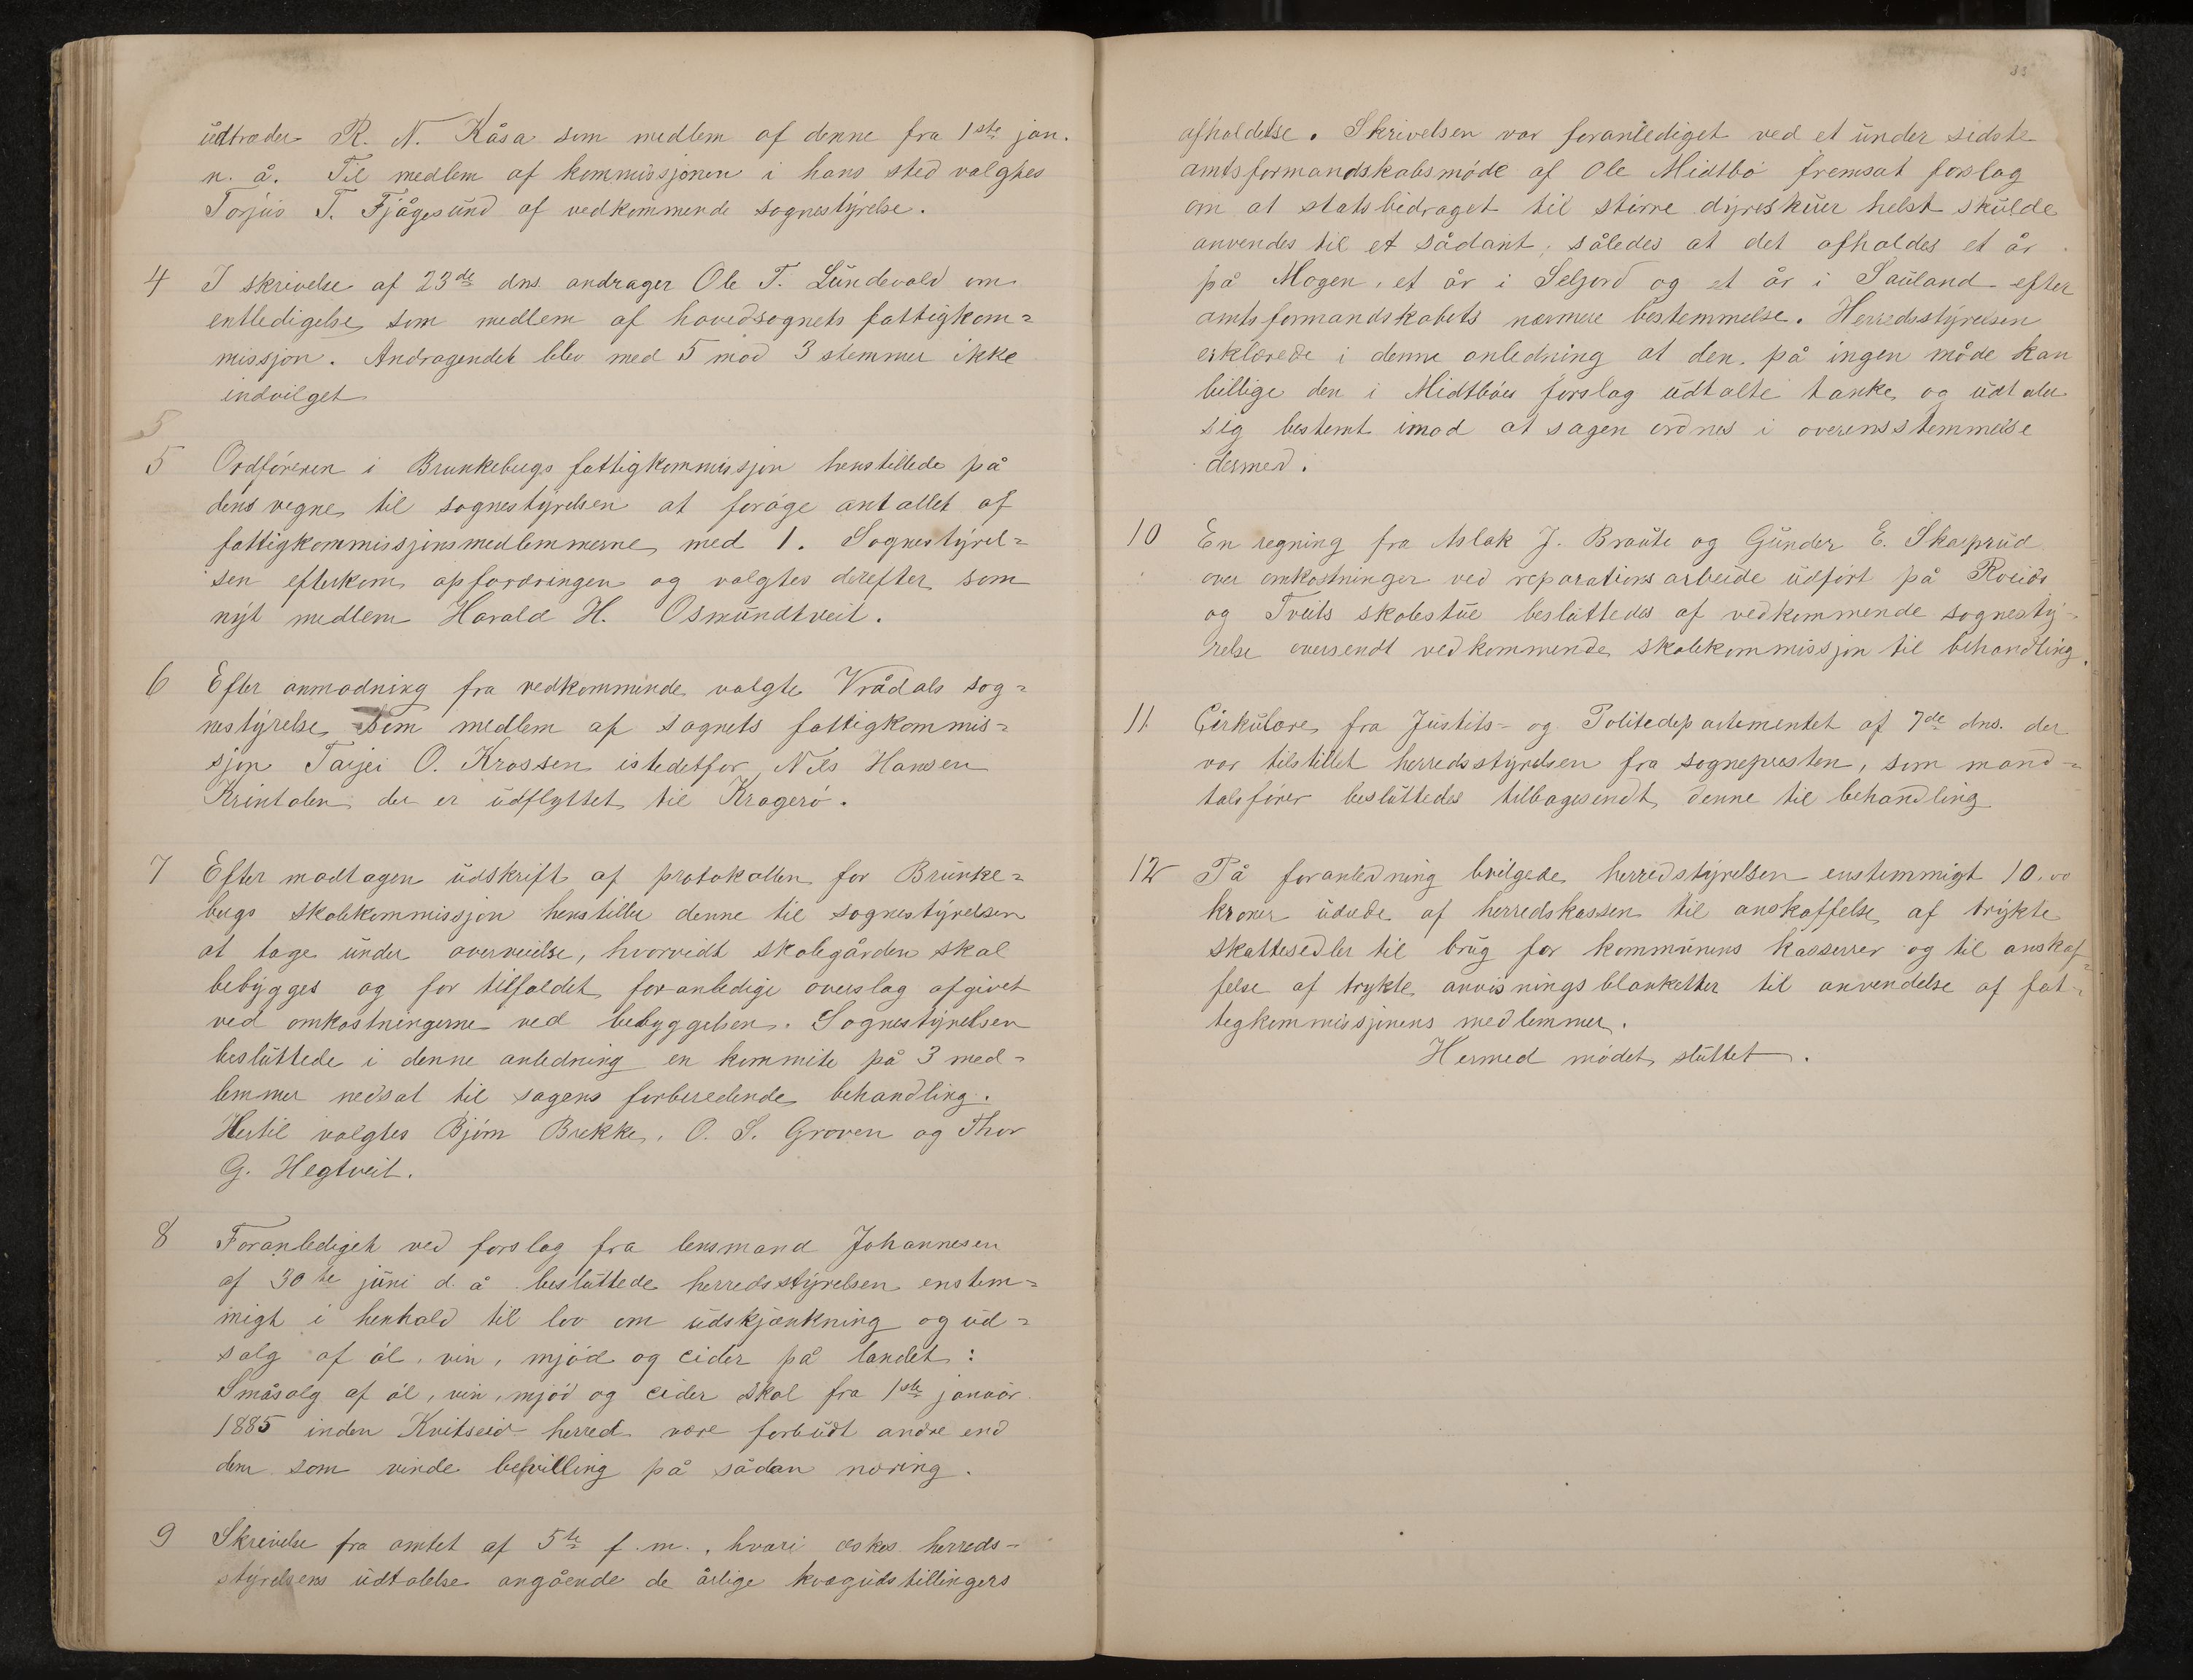 udtræder R. N. Kåsa som medlem af denne fra 1ste jan.
n. å. Til medlem af kommissjonen i hans sted valgtes
Torjus T. Fjågesund af vedkommende sognestyrelse.
4 I skrivelse af 23de dns. andrager Ole T. Lundevald om
entledigelse som medlem af hovedsognets fattigkom=
missjon. Andragendet blev med 5 mod 3 stemmer ikke
indvilget
5
5 Ordføreren i Brunkebergs fattigkommissjon henstillede på
dens vegne til sognestyrelsen at forøge antallet af
fattigkommissjonsmedlemmerne med 1. Sognestyrel=
sen efterkom opfordringen og valgtes derefter som
nyt medlem Harald H. Osmundtveit.
6 Efter anmodning fra vedkommende valgte Vrådals sog=
nestyrelse som medlem af sognets fattigkommis=
sjon Tarjei O. Krossen istedetfor Nils Hansen
Krintolen der er udflyttet til Kragerø.
7 Efter modtagen udskrift af protokollen for Brunke=
bergs skolekommissjon henstiller denne til sognestyrelsen
at tage under overveielse, hvorvidt skolegården skal
bebygges og for tilfældet foranledige overslag afgivet
ved omkostningerne ved bebyggelsen. Sognestyrelsen
besluttede i denne anledning en kommite på 3 med=
lemmer nedsat til sagens forberedende behandling.
Hertil valgtes Bjørn Brekke, O. S. Groven og Thor
G. Hegtveit.
8 Foranlediget ved forslag fra lensmand Johannesen
af 30te juni d. å besluttede herredsstyrelsen enstem=
migt i henhold til lov om udskjænkning og ud=
salg af øl, vin, mjød og cider på landet:
Småsalg af øl, vin, mjød og cider skal fra 1ste januar
1885 inden Kvitseid herred være forbudt andre end
dem som vinde bevilling på sådan næring.
9 Skrivelse fra amtet af 5te f. m., hvori æskes herreds-
styrelsens udtalelse angående de årlige kvægudstillingers
33
afholdelse. Skrivelsen var foranlediget ved et under sidste
amtsformandskabsmøde af Ole Midtbø fremsat forslag
om at statsbidraget til større dyreskuer helst skulde
anvendes til et sådant, således at det afholdes et år
på Mogen, et år i Seljord og et år i Sauland efter
amtsformandskabets nærmere bestemmelse. Herredsstyrelsen
erklærede i denne anledning at den på ingen måde kan
billige den i Midtbøes forslag udtalte tanke og udtaler
sig bestemt imod at sagen ordnes i overensstemmelse
dermed.
10 En regning fra Aslak J. Braute og Gunder E. Skarprud
over omkostninger ved reparationsarbeide udført på Roeids
og Tveits skolestue besluttedes af vedkommende sognesty-
relse oversendt vedkommende skolekommissjon til behandling.
11 Cirkulære fra Justits- og Politedepartementet af 7de dns. der
var tilstillet herredsstyrelsen fra sognepresten, som mand=
talsfører besluttedes tilbagesendt denne til behandling
12 På foranledning bevilgede herredstyrelsen enstemmigt 10.00
kroner udrede af herredskassen til anskaffelse af trykte
skattesedler til brug for kommunens kasserer og til anskaf=
felse af trykte anvisningsblanketter til anvendelse af fat-
tegkommissjonens medlemmer.
Hermed mødet sluttet.